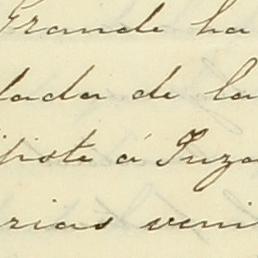 Grande ha
lada de la
piste á Juza
rias veni